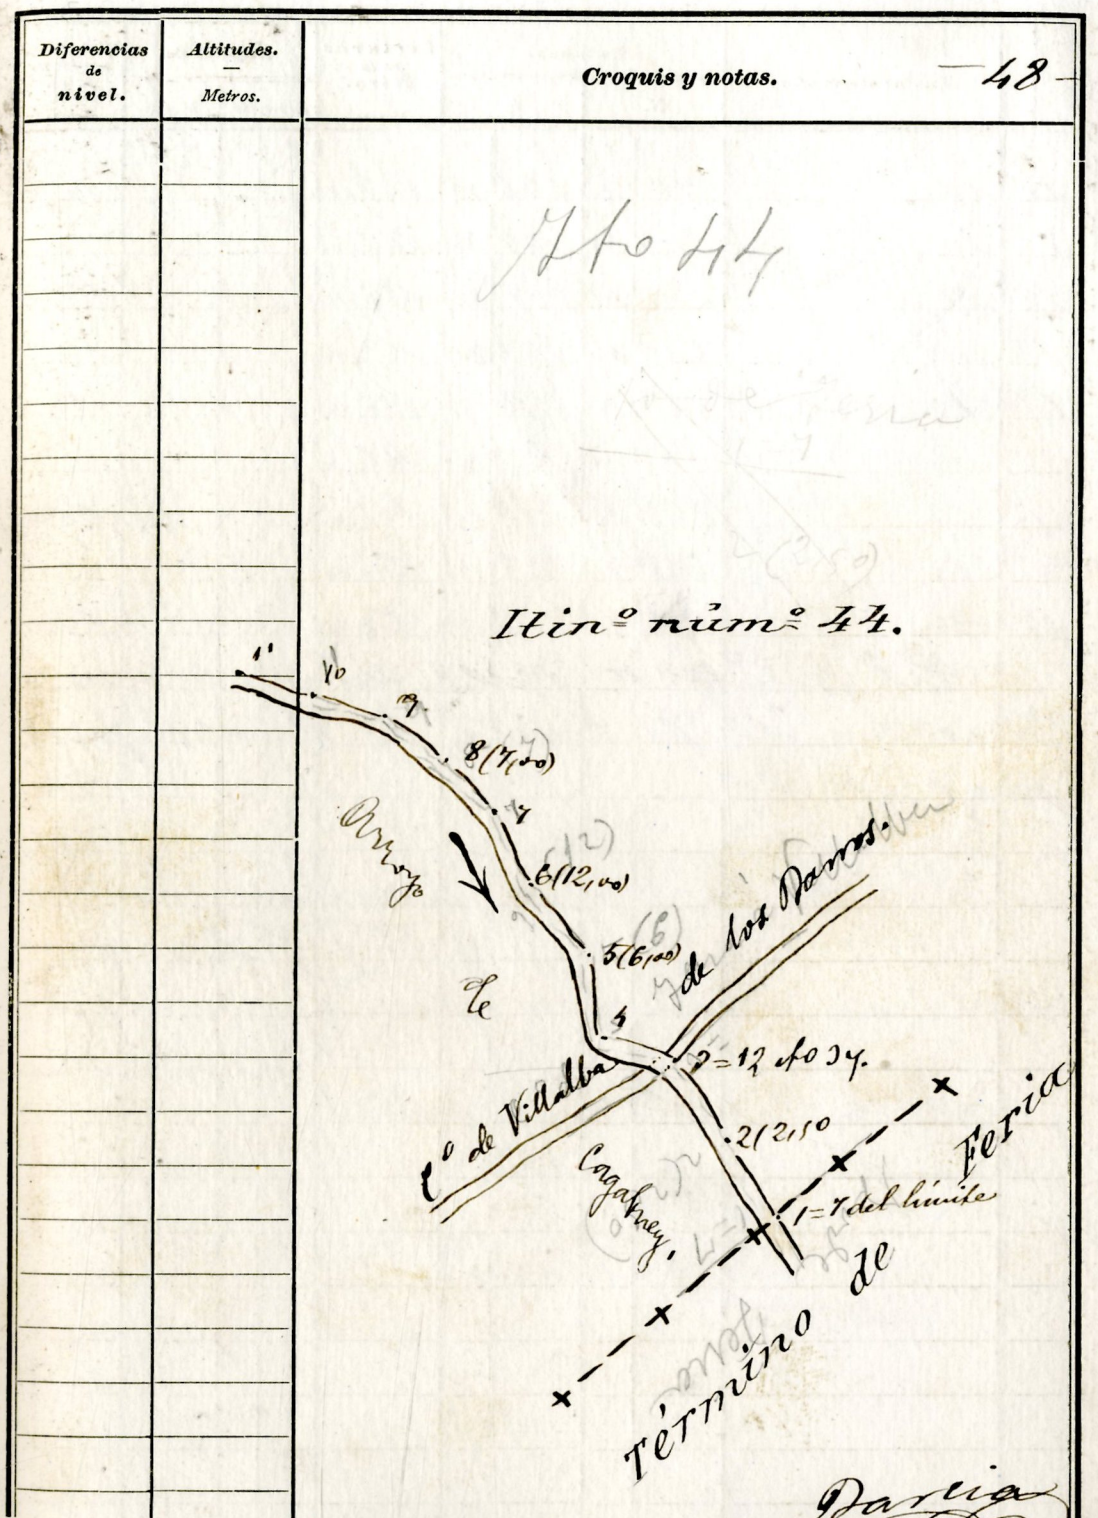 Diferencias
de
nivel.
Altitudes.
Metros.
Croquis y notas.
— 48 —
Ito 44
Itinº númº 44.
11
10
9
8 (7,00)
7
6 (12,00)
5 (6,00)
4
3 = 12 ito 37.
2 (2,50
1 = 7 del límite
Arroyo
de
Cagabuey.
Cº de Villalba
de los Barros.
Término de Feria
Garcia